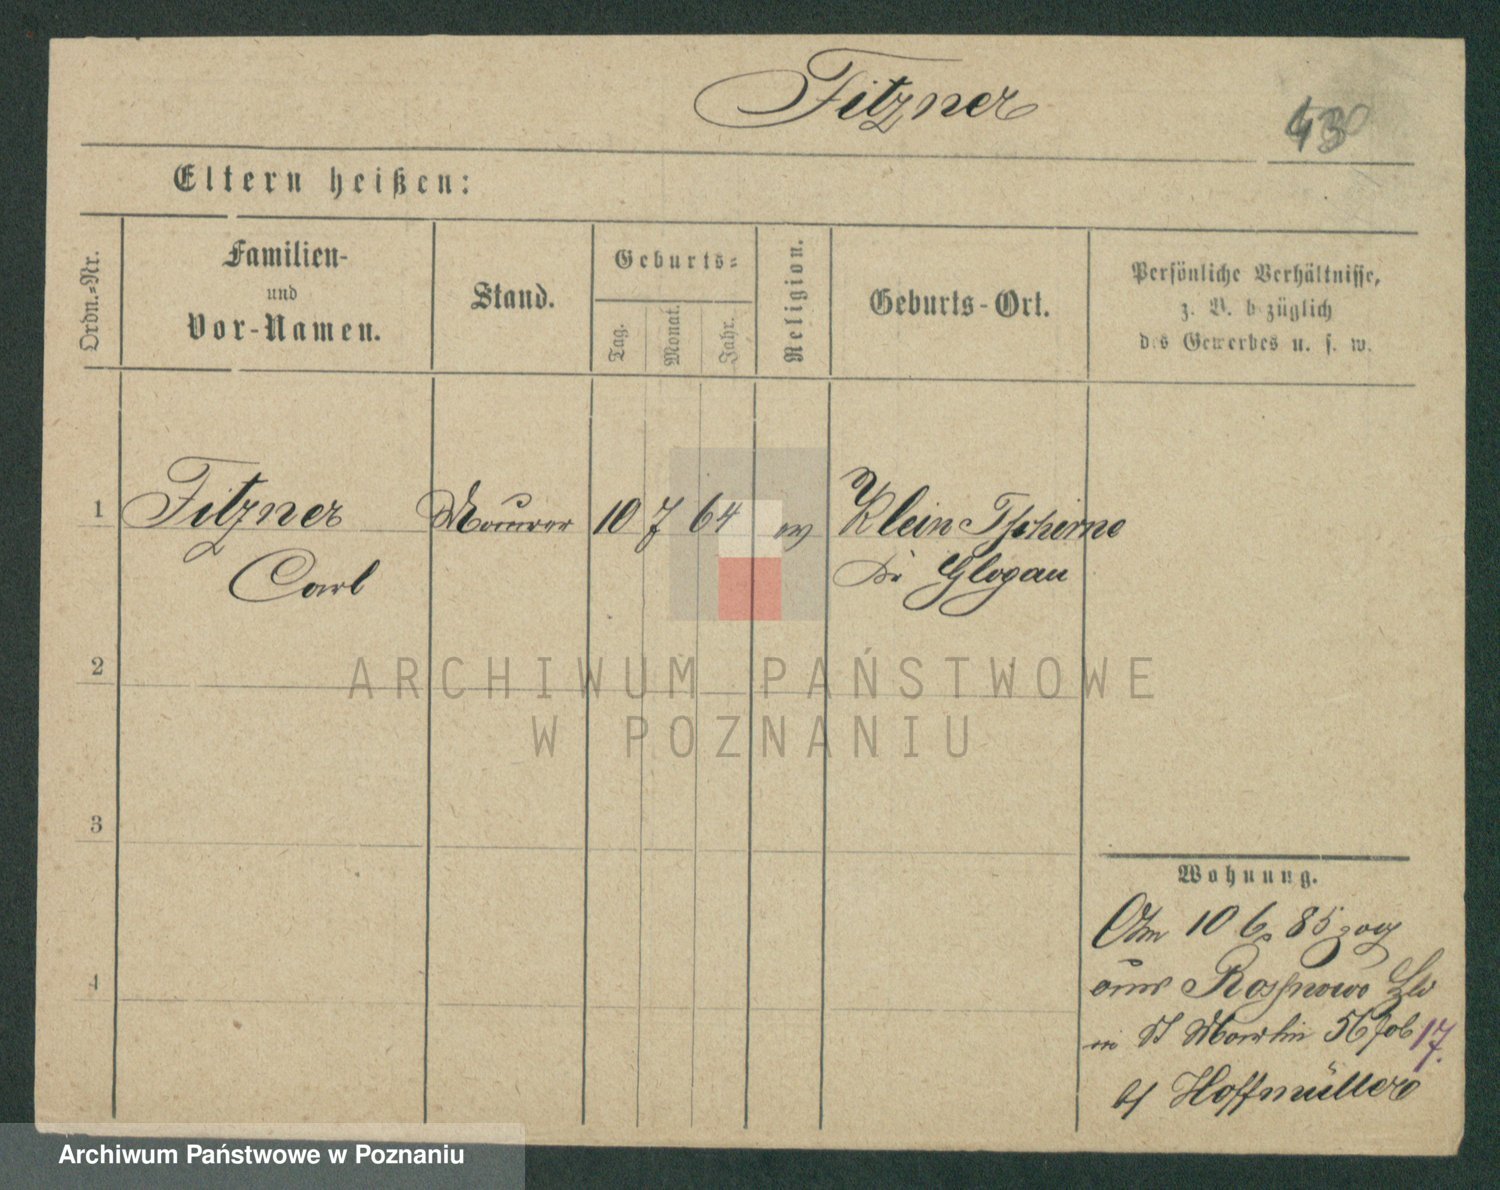 Fitzner
43
Eltern heißen:
Ordn.-Nr.
Familien-
und
Vor-Namen.
Stand.
Geburts-
Tag.
Monat.
Jahr.
Religion.
Geburts-Ort.
Persönliche Verhältnisse,
z. B. bezüglich
des Gewerbes u. s. w.
1 Fitzner Maurer 10 7 64 ev Klein Tschirne
Carl Glogau
2
3
4
Wohnung.
10 6 85 zog
aus Rosnowo
in St Martin 56 17.
b/ Hoffmüller
ARCHIWUM PAŃSTWOWE
W POZNANIU
Archiwum Państwowe w Poznaniu